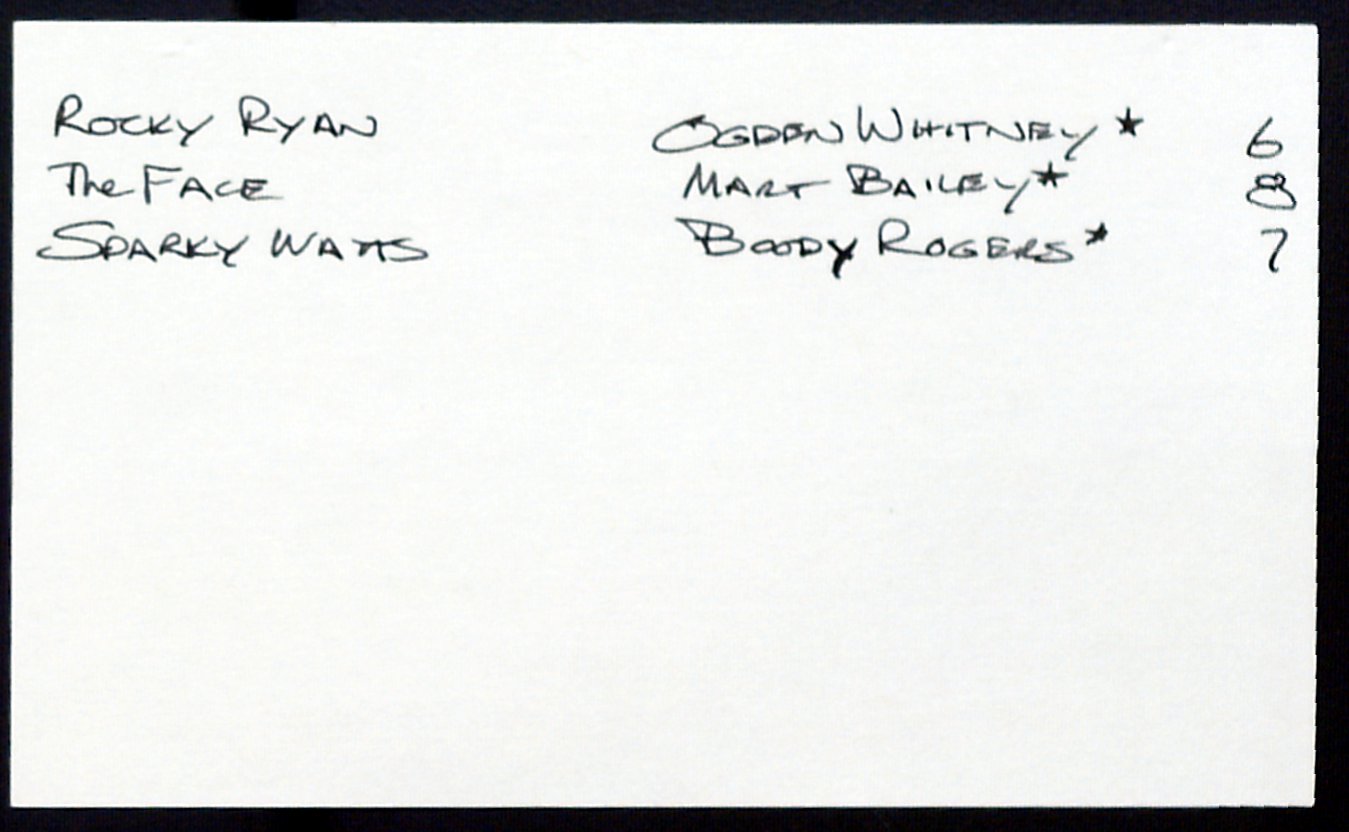 Rocky Ryan Ogden Whitney ★ 6
The Face Mart Bailey ★ 8
Sparky Watts Boody Rogers ★ 7